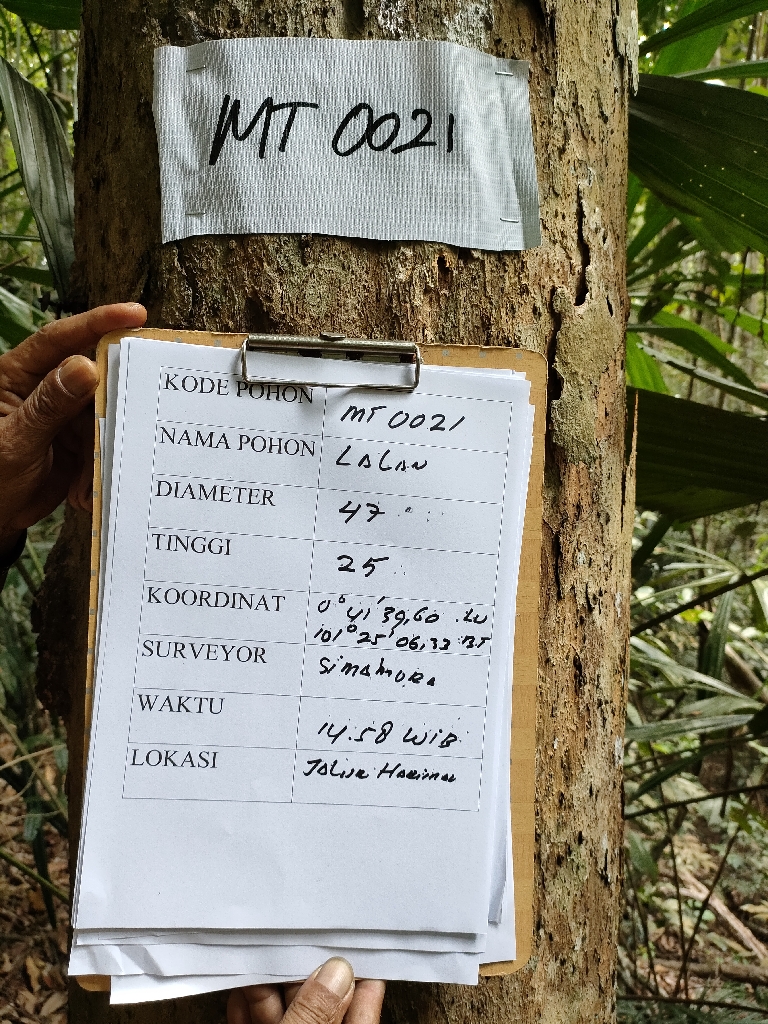 MT 0021
KODE POHON MT 0021
NAMA POHON LALAN
DIAMETER 47
TINGGI 25
KOORDINAT 0° 41' 39,60 LU
101° 25' 06,33 BT
SURVEYOR Simamora
WAKTU 14.58 WIB
LOKASI Jalur Harimau